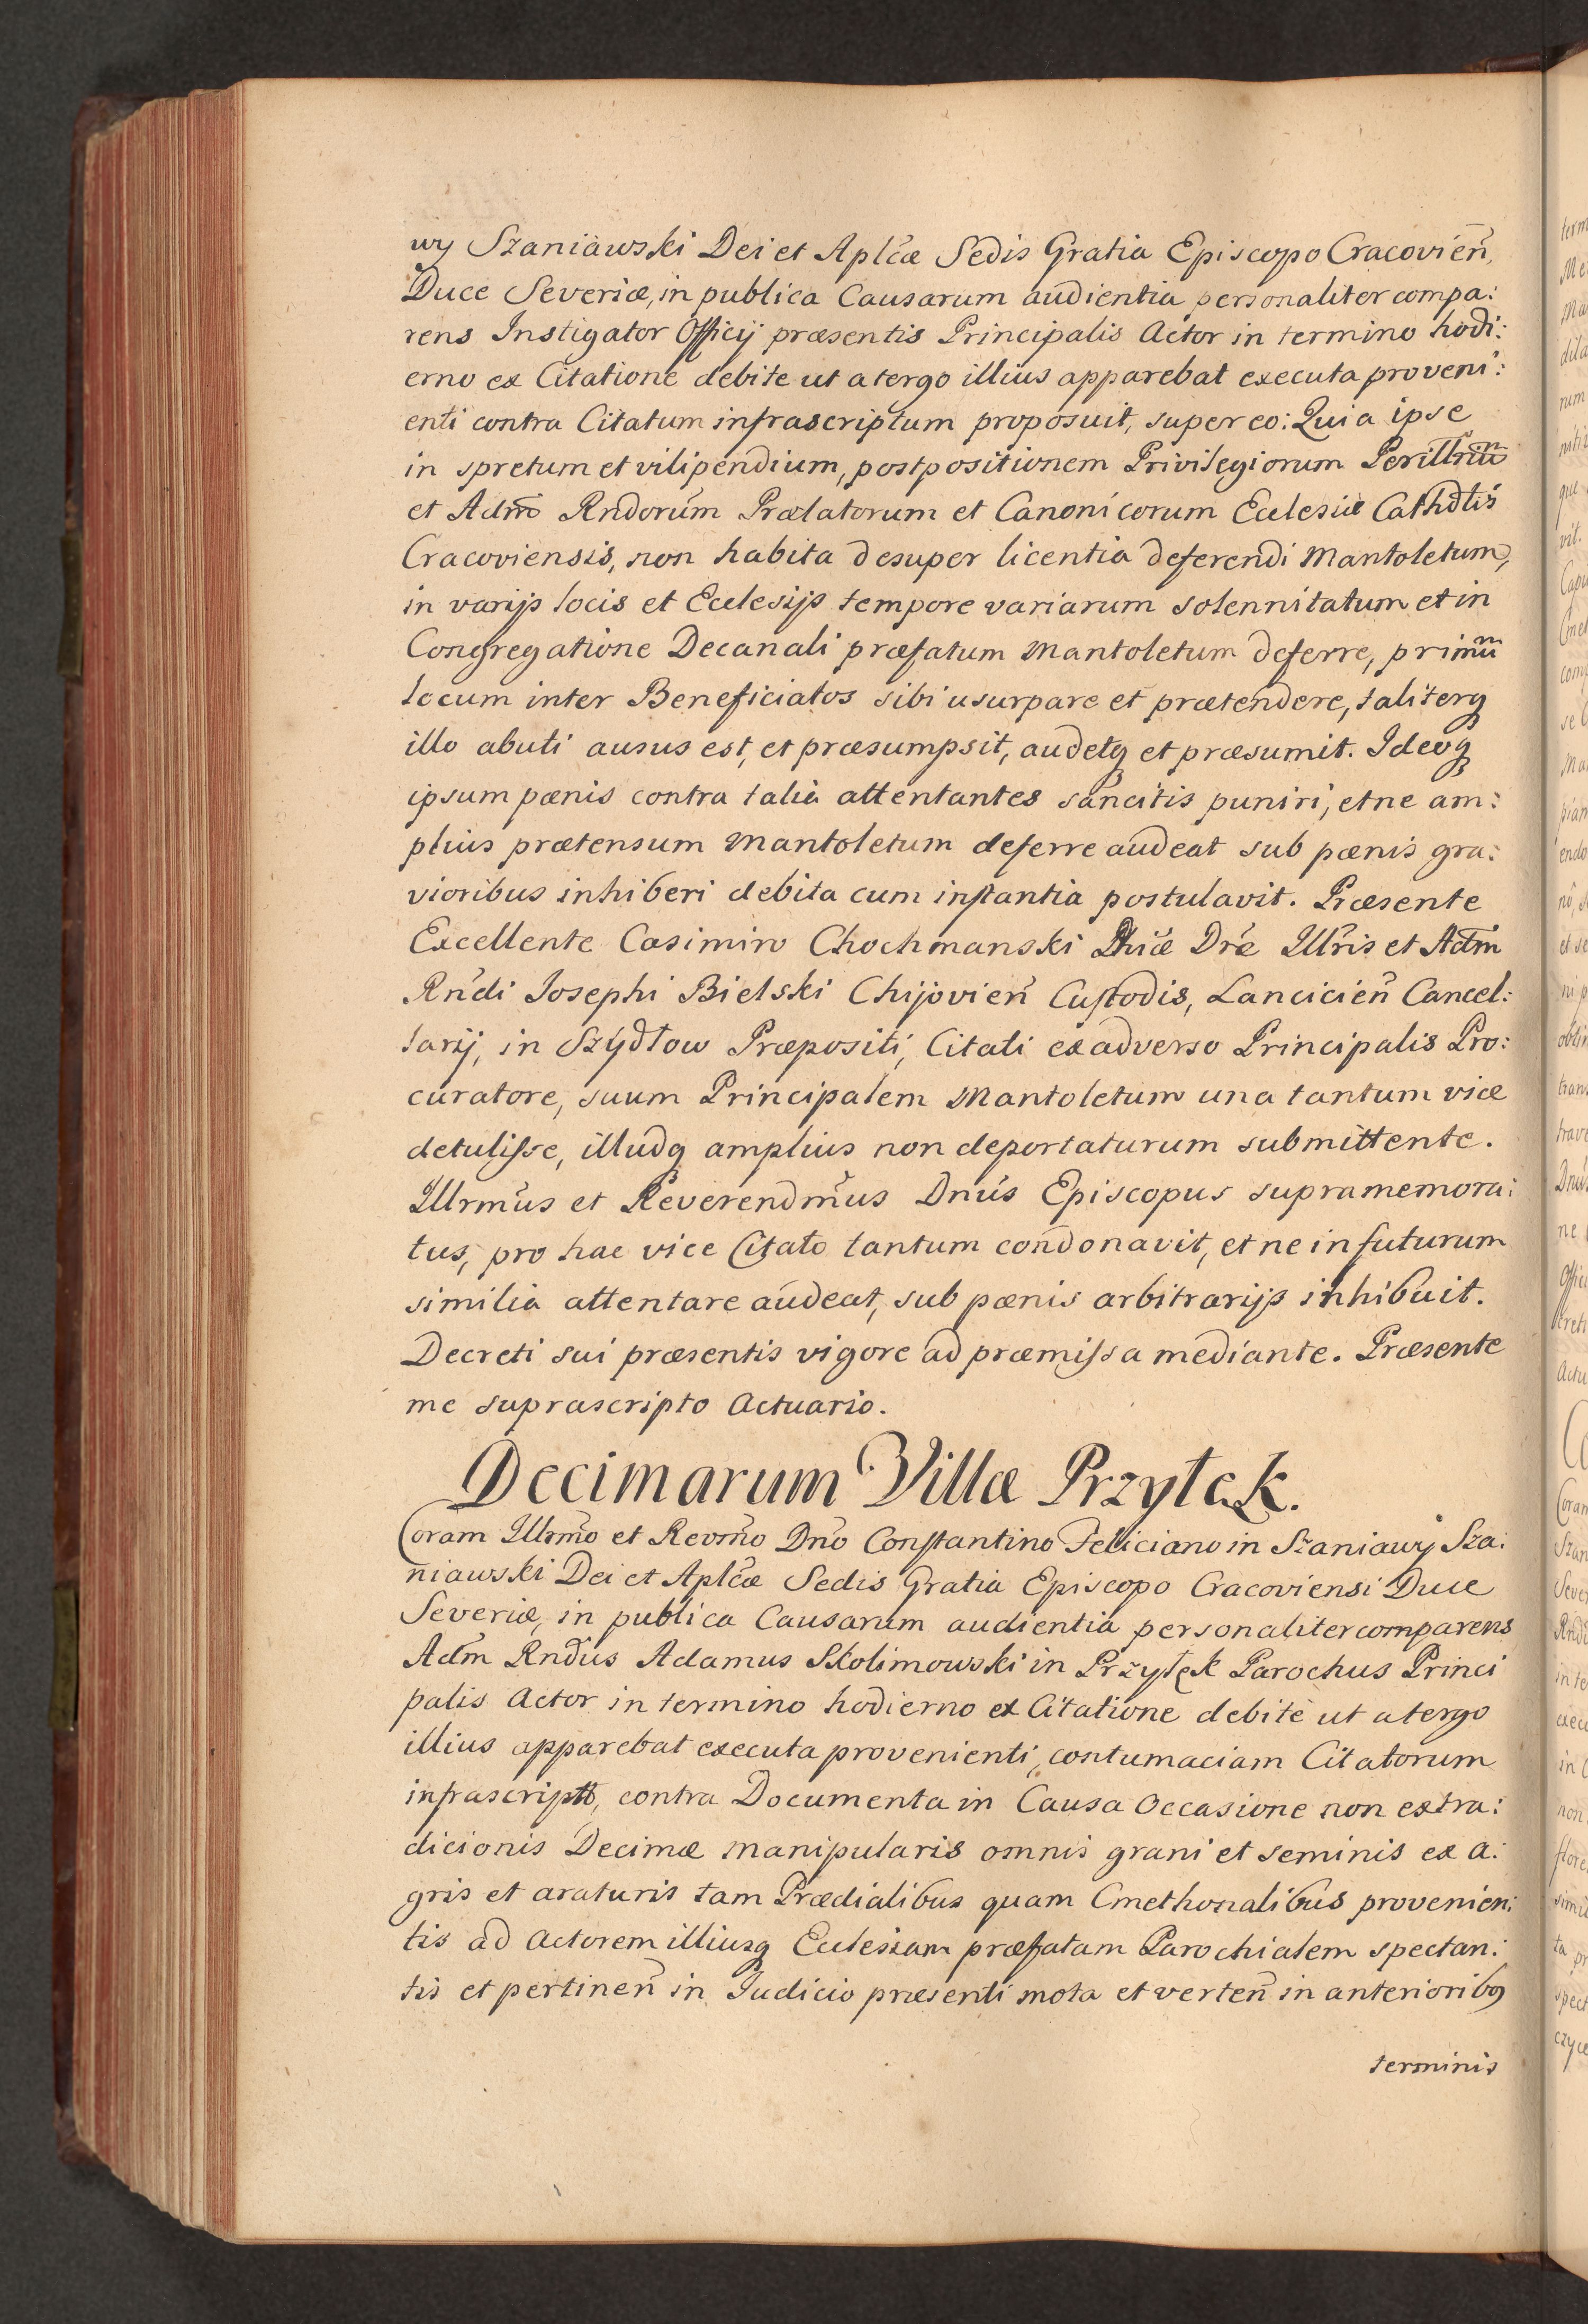 wy Szaniawski Dei et Aplcæ Sedis Gratia Episcopo Cracovien̄,
Duce Severiæ, in publica Causarum audientia personaliter compa:
rens Instigator Officij præsentis Principalis Actor in termino hodi:
erno ex Citatione debite ut a tergo illius apparebat executa proveni:
enti contra Citatum infrascriptum proposuit, super eo: Quia ipse
in spretum et vilipendium, postpositionem Privilegiorum Perillrium
et Adm̄ Rndorum Prælatorum et Canonicorum Ecclesiæ Cathdlis
Cracoviensis, non habita desuper licentia deferendi Mantoletum,
in varijs locis et Ecclesijs tempore variarum solennitatum et in
Congregatione Decanali præfatum Mantoletum deferre, primū
locum inter Beneficiatos sibi usurpare et prætendere, taliterq
illo abuti ausus est, et præsumpsit, audetq et præsumit. Ideoq
ipsum pænis contra talia attentantes sancitis puniri, et ne am:
plius prætensum Mantoletum deferre audeat sub pænis gra:
vioribus inhiberi debita cum instantia postulavit. Præsente
Excellente Casimiro Chochmanski Phiæ Dre Illris et Adm̄
Rndi Josephi Bielski Chijovien̄ Custodis, Lancicien̄ Cancel:
larij, in Szydłow Præpositi, Citati ex adverso Principalis Pro:
curatore, suum Principalem Mantoletum una tantum vice
detulisse, illudq amplius non deportaturum submittente.
Illrmus et Reverendmus Dnus Episcopus supramemora:
tus, pro hac vice Citato tantum condonavit, et ne in futurum
similia attentare audeat, sub pænis arbitrarijs inhibuit.
Decreti sui præsentis vigore ad præmissa mediante. Præsente
me suprascripto Actuario.
Decimarum Villæ Przytek.
Coram Illrmo et Revsmo Dno Constantino Feliciano in Szaniawy Sza:
niawski Dei et Aplcæ Sedis Gratia Episcopo Cracoviensi Duce
Severiæ, in publica Causarum audientia personaliter comparens
Adm̄ Rndus Adamus Skolimowski in Przytęk Parochus Princi
palis Actor in termino hodierno ex Citatione debite ut a tergo
illius apparebat executa provenienti, contumaciam Citatorum
infrascriptt, contra Documenta in Causa Occasione non extra:
dicionis Decimæ manipularis omnis grani et seminis ex a:
gris et araturis tam Prædialibus quam Cmethonalibus provenien:
tis ad Actorem illiusq Ecclesiam præfatam Parochialem spectan:
tis et pertinen̄ in Judicio præsenti mota et verten̄ in anterioribꝯ
terminis